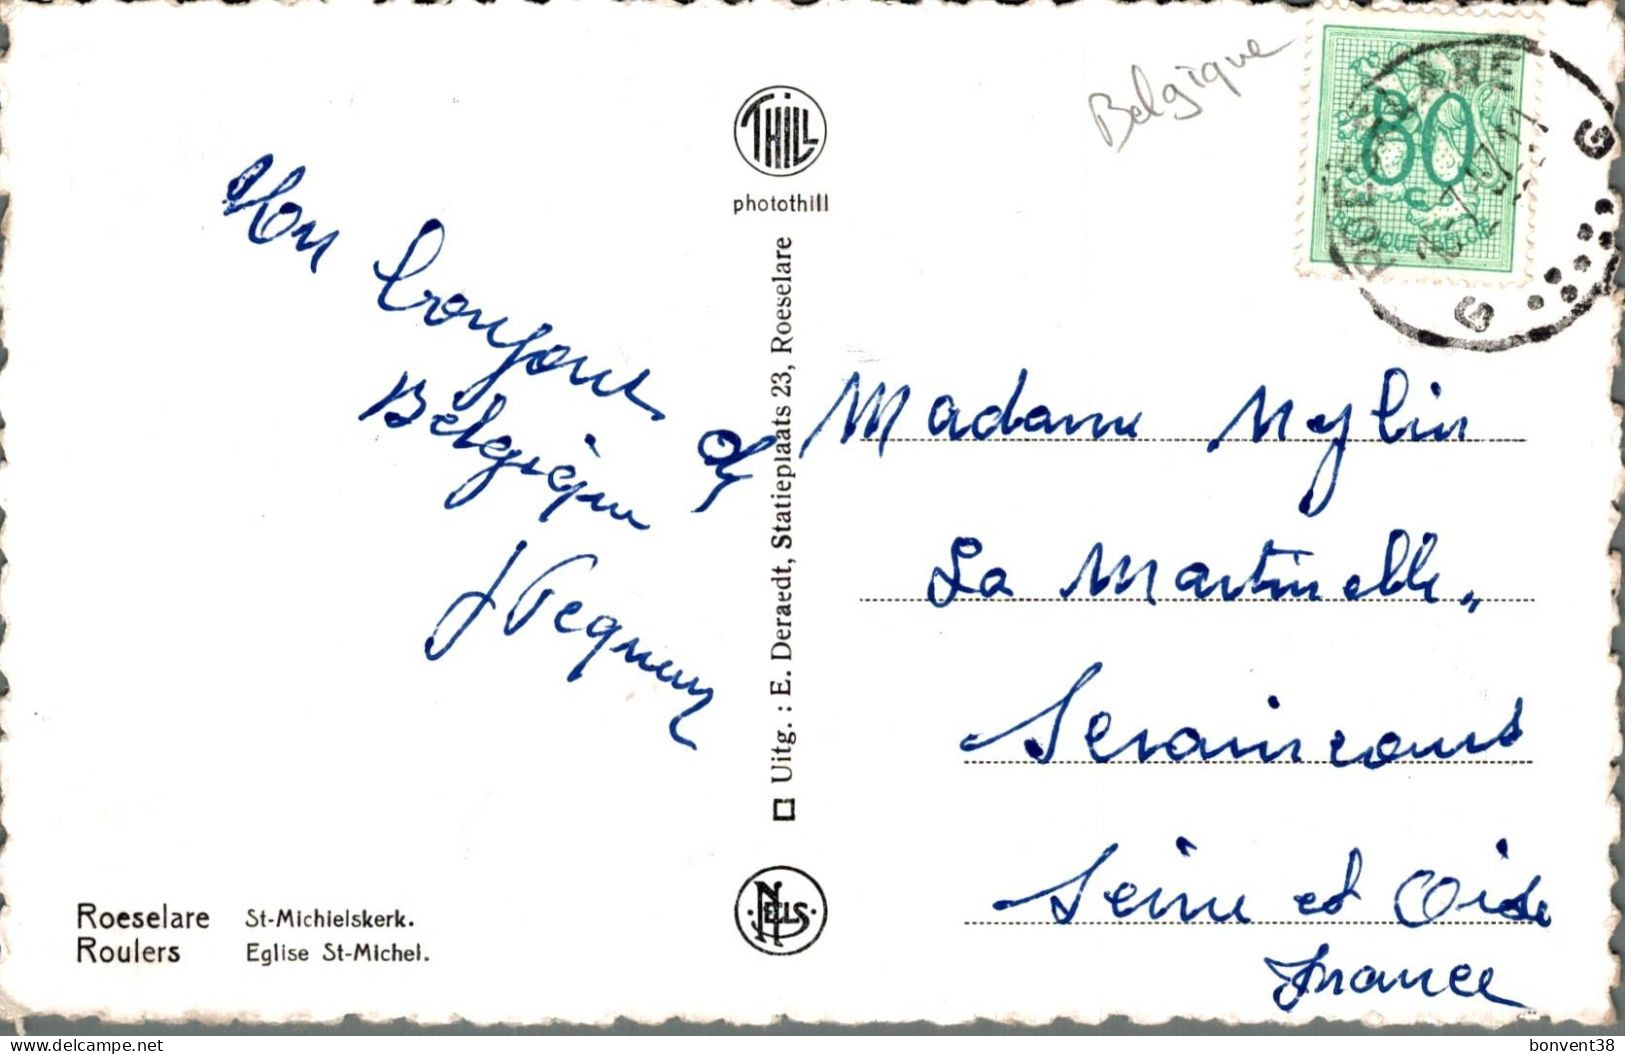 Belgique
THILL
photothill
80
c
BELGIQUE-BELGIË
ROESELARE
G G
Mon bonjour de
Belgique
J Pequeux
Uitg. : E. Deraedt, Statieplaats 23, Roeselare
Madame Mylin
La Martinelle„
Seraincourt
Seine et Oise
France
NELS
Roeselare St-Michielskerk.
Roulers Eglise St-Michel.
bonvent38
delcampe.net